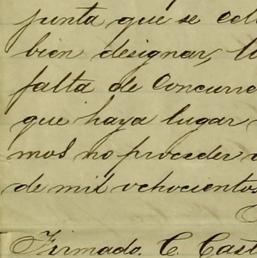 junta que se cele
bien designar, lo
falta de Concurre
que haya lugar
mos no proceder
de mil ochocientos
Firmado. C. Cast